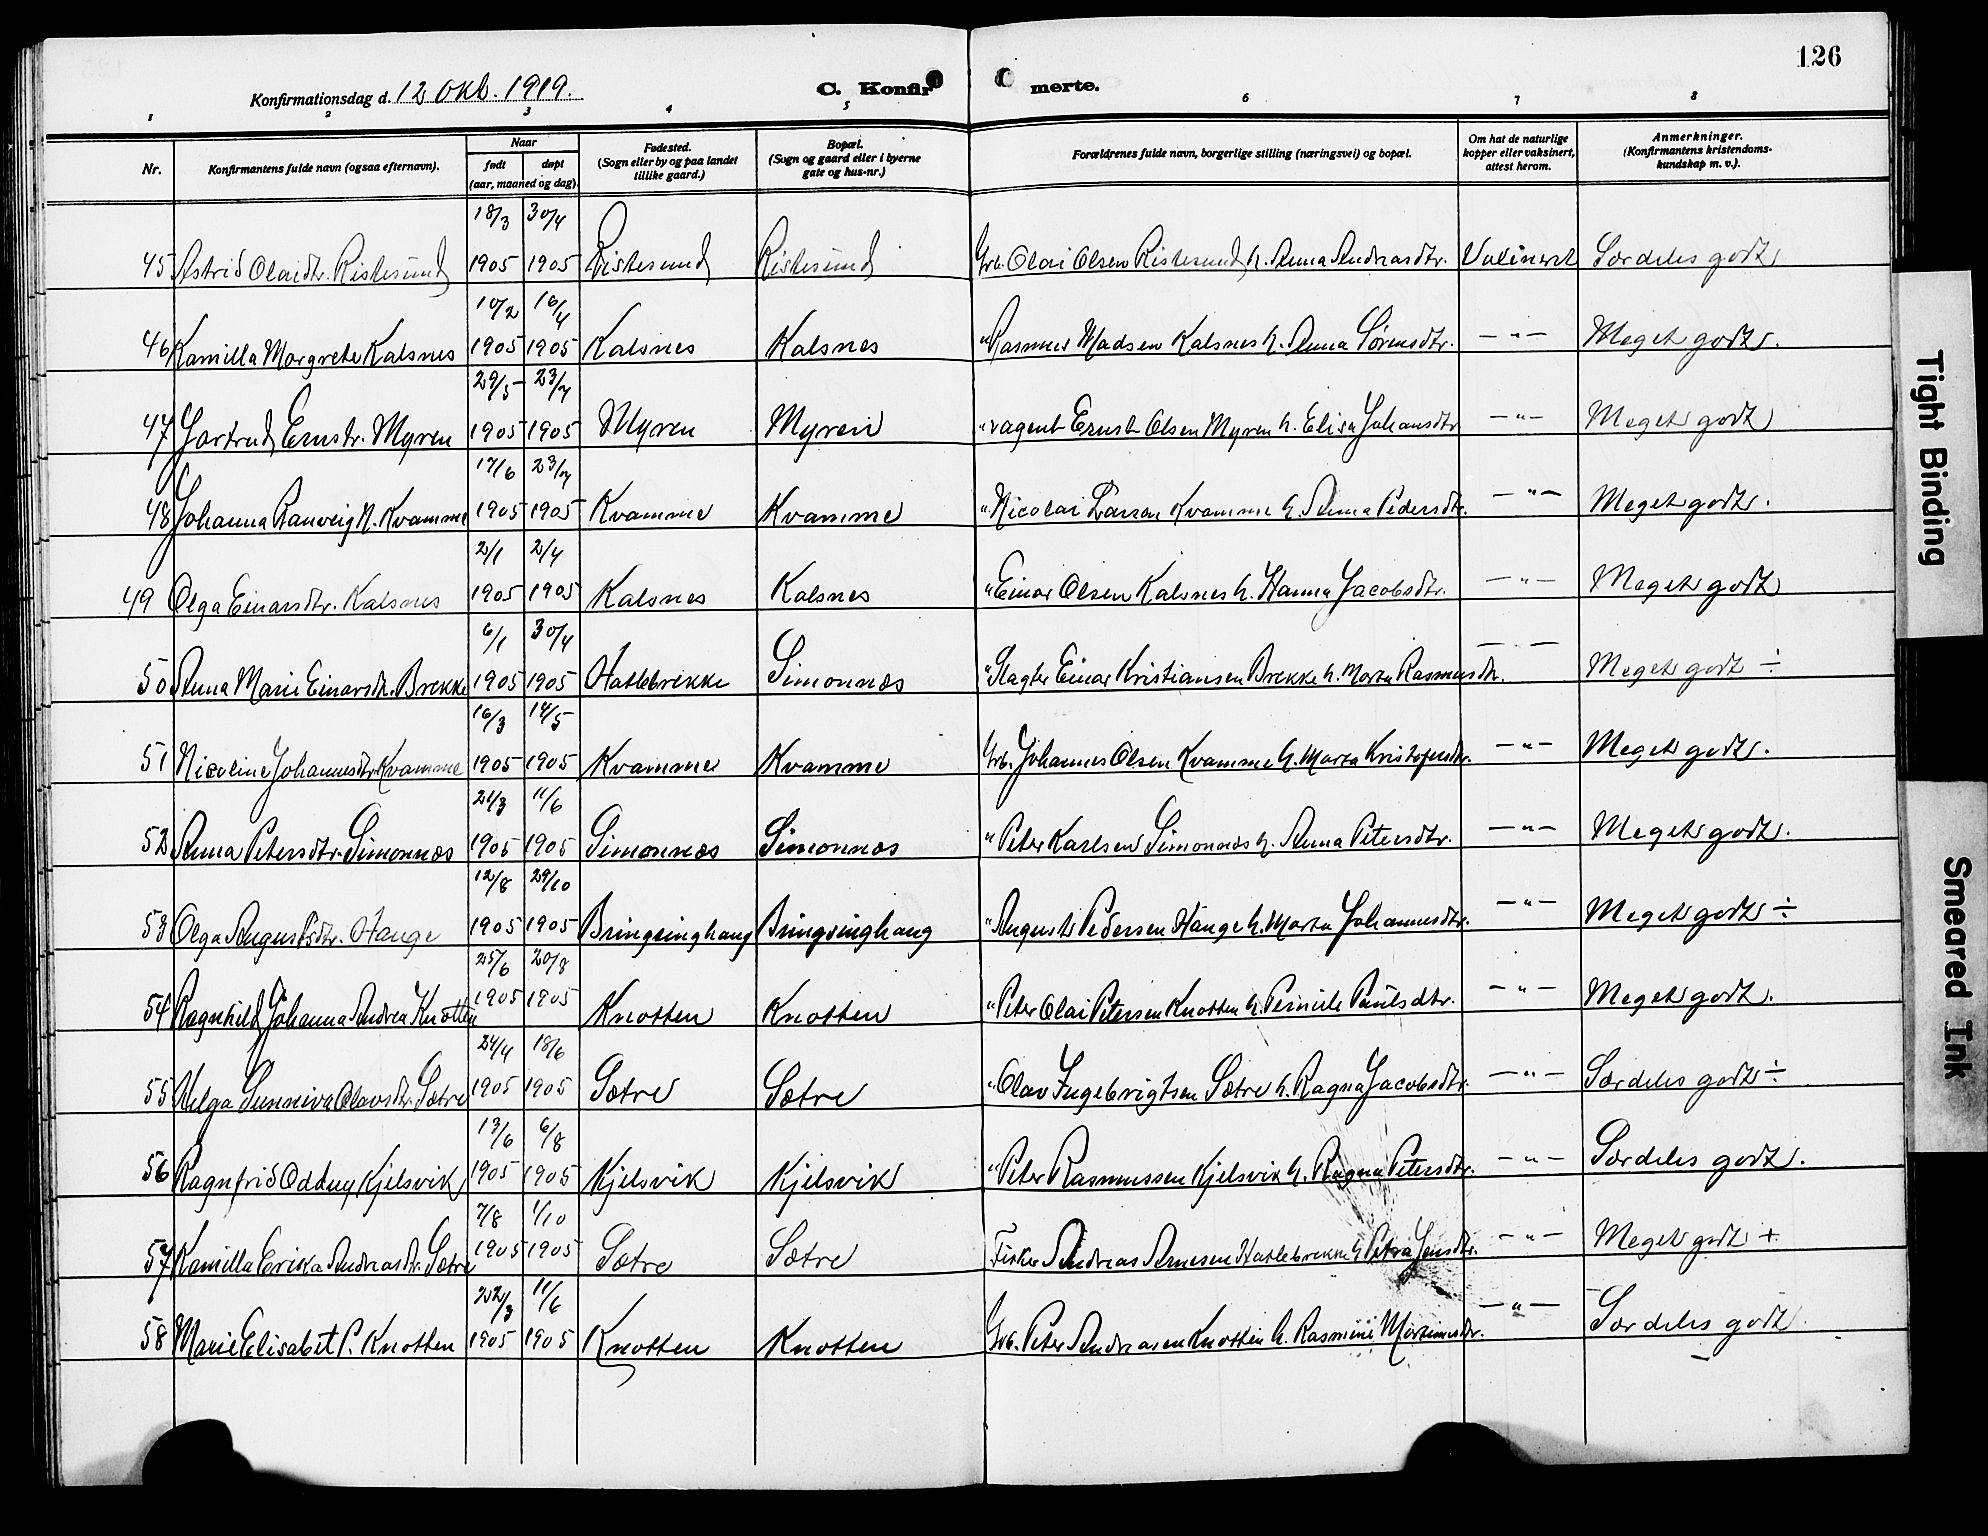 126
Konfirmationsdag d. 12 okt. 1919. C. Konfir merte.
1 2 3 4 5 6 7 8
Nr. Konfirmantens fulde navn (ogsaa efternavn). Naar født døpt (aar, maaned og dag) Fødested. (Sogn eller by og paa landet tillike gaard.) Bopæl. (Sogn og gaard eller i byerne gate og hus-nr.) Forældrenes fulde navn, borgerlige stilling (næringsvei) og bopæl. Om hat de naturlige kopper eller vaksinert, attest herom. Anmerkninger. (Konfirmantens kristendoms-kundskap m. v.).
18/3 30/4
45 Astrid Olaidtr. Ristesund 1905 1905 Ristesund Ristesund Grb. Olai Olsen Ristesund h. Anna Andreasdtr. Særdeles godt
10/2 16/4
46 Kamilla Margrete Kalsnes 1905 1905 Kalsnes Kalsnes " Rasmus Madsen Kalsnes h. Anna Sørensdtr. —"— Meget godt.
29/5 23/7
47 Gertrud Ernstr. Myren 1905 1905 Myren Myren " agent Ernst Olsen Myren h. Elisa Johansdtr —"— Meget godt
17/6 23/7
48 Johanna Ranveig N. Kvamme 1905 1905 Kvamme Kvamme " Nicolai Larsen Kvamme h. Anna Pedersdtr. —"— Meget godt.
2/1 2/4
49 Olga Einarsdtr. Kalsnes 1905 1905 Kalsnes Kalsnes " Einar Olsen Kalsnes h. Hanna Jacobsdtr. —"— Meget godt
6/1 30/4
50 Anna Marie Einarsdtr. Brekke 1905 1905 Hatlebrekke Simonnæs " Slagter Einar Kristiansen Brekke h. Marta Rasmusdtr. —"— Meget godt ÷
16/3 14/5
51 Nicoline Johannesdtr. Kvamme 1905 1905 Kvamme Kvamme Grb. Johannes Olsen Kvamme h. Marta Kristofersdtr. —"— Meget godt.
21/3 11/6
52 Anna Petersdtr. Simonnæs 1905 1905 Simonnæs Simonnæs " Peter Karlsen Simonnæs h. Anna Petersdtr. —"— Meget godt.
12/8 29/10
53 Olga Augustsdtr. Hauge 1905 1905 Bringsinghaug Bringsinghaug " August Pedersen Hauge h. Marta Johannesdtr. —"— Meget godt ÷
25/6 20/8
54 Ragnhild Johanna Andrea Knotten 1905 1905 Knotten Knotten " Peter Olai Petersen Knotten h. Pernille Paulsdtr. —"— Meget godt.
24/4 18/6
55 Helga Sunniva Olavsdtr. Sætre 1905 1905 Sætre Sætre " Olav Ingebrigtsen Sætre h. Ragna Jacobsdtr. —"— Særdeles godt ÷
13/6 6/8
56 Ragnfrid Oddny Kjelsvik 1905 1905 Kjelsvik Kjelsvik " Peter Rasmussen Kjelsvik h. Ragna Petersdtr. —"— Særdeles godt.
7/8 1/10
57 Kamilla Erika Andreasdtr. Sætre 1905 1905 Sætre Sætre Fisker Andreas Arnesen Hatlebrekke h. Petra Jensdtr. —"— Meget godt +
22/3 11/6
58 Marie Elisabet P. Knotten 1905 1905 Knotten Knotten Grb. Peter Andreasen Knotten h. Rasmine Martinusdtr. —"— Særdeles godt.
Tight Binding
Smeared Ink